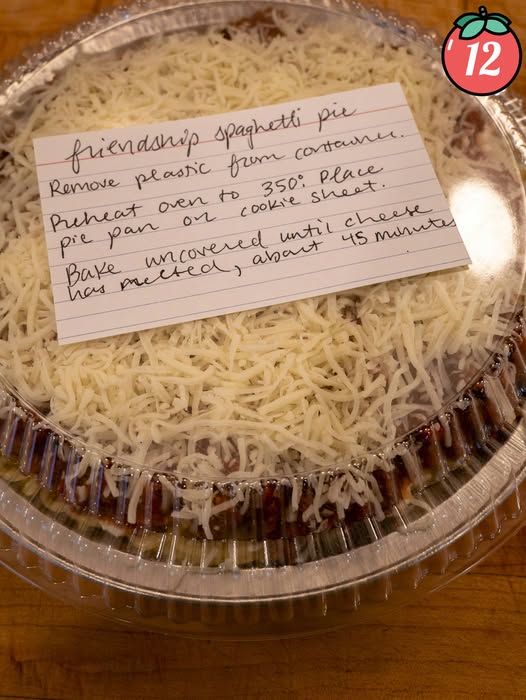 '12
friendship spaghetti pie
Remove plastic from container.
Preheat oven to 350°. Place
pie pan on cookie sheet.
Bake uncovered until cheese
has melted, about 45 minutes